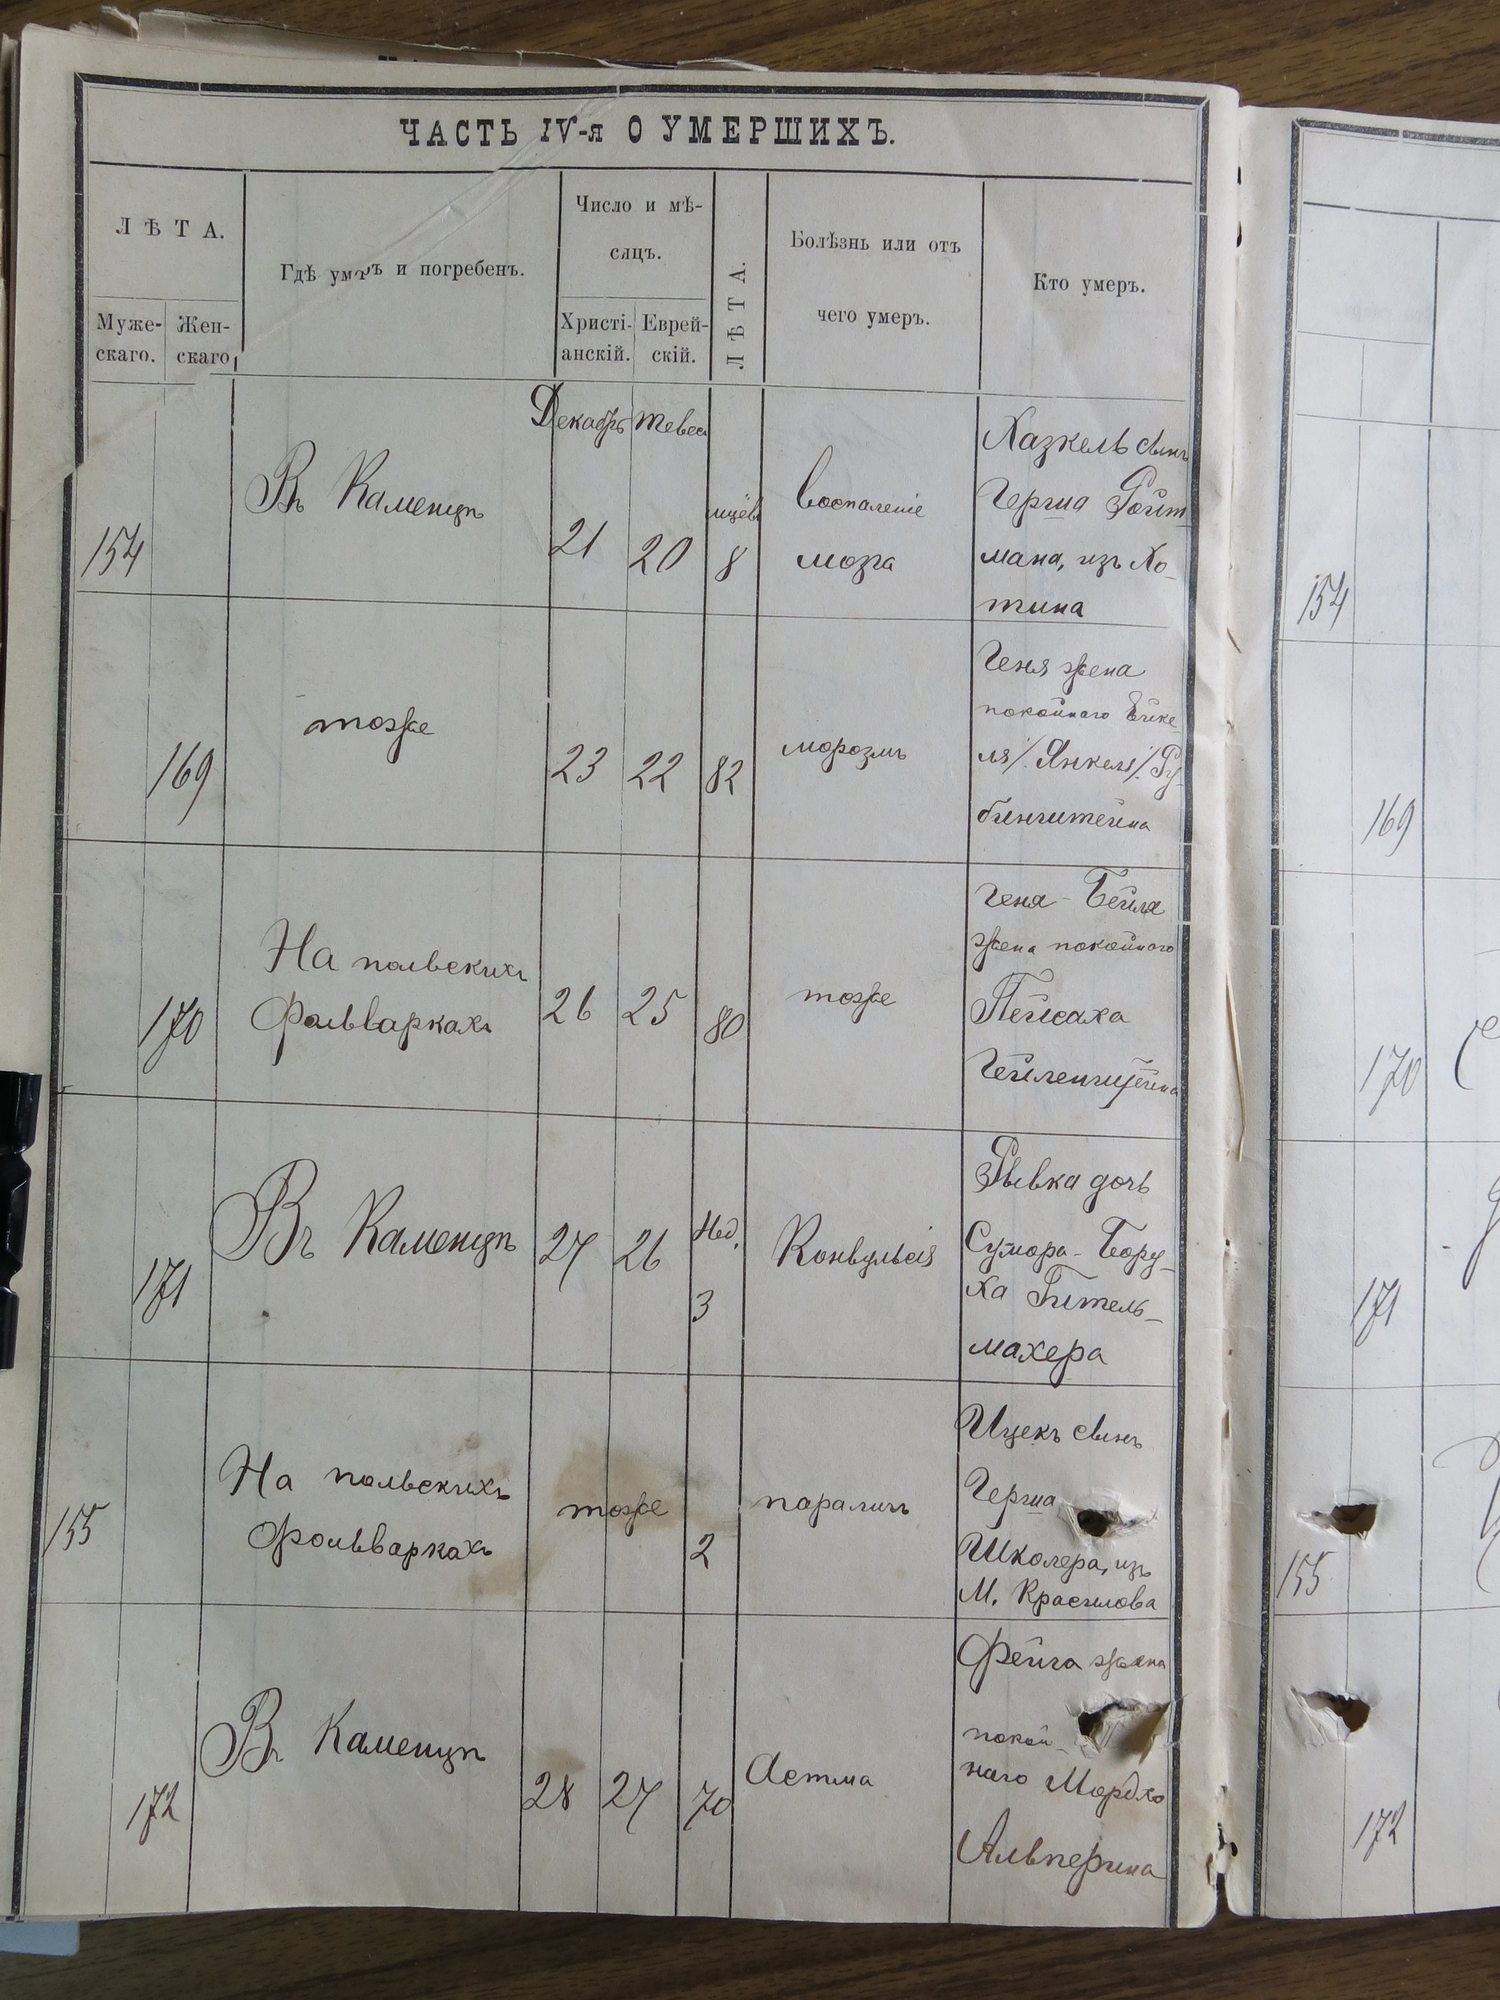 ЧАСТЬ IV-я О УМЕРШИХЪ.
ЛѢТА.
Муже-
скаго.
Жен-
скаго
Гдѣ умеръ и погребенъ.
Число и мѣ-
сяцъ.
Христі-
анскій.
Еврей-
скій.
ЛѢТА.
Болѣзнь или отъ
чего умеръ.
Кто умеръ.
Декабрь
Тевеса
154
Въ Каменцѣ
21
20
8
Воспаленіе
мозга
Хазкель сынъ
Герша Ройт-
мана, изъ Хо-
тина
169
тоже
23
22
82
морозмъ
Геня жена
покойнаго Ейке-
ля /. Янкеля /. Ру-
бинштейна
170
На польскихъ
фольваркахъ
26
25
80
тоже
Геня-Бейла
жена покойнаго
Пейсаха
171
Въ Каменцѣ
27
26
Нед.
3
Конвульсія
Рывка дочь
Сумора-Бору-
ха Гительь-
махера
155
На польскихъ
фольваркахъ
тоже
2
параличъ
Ицекъ сынъ
Герша
Школера, изъ
М. Красилова
172
Въ Каменцѣ
28
27
70
Астма
Фейга жена
покой-
наго Мордхо
Альперина
154
169
170
171
155
172